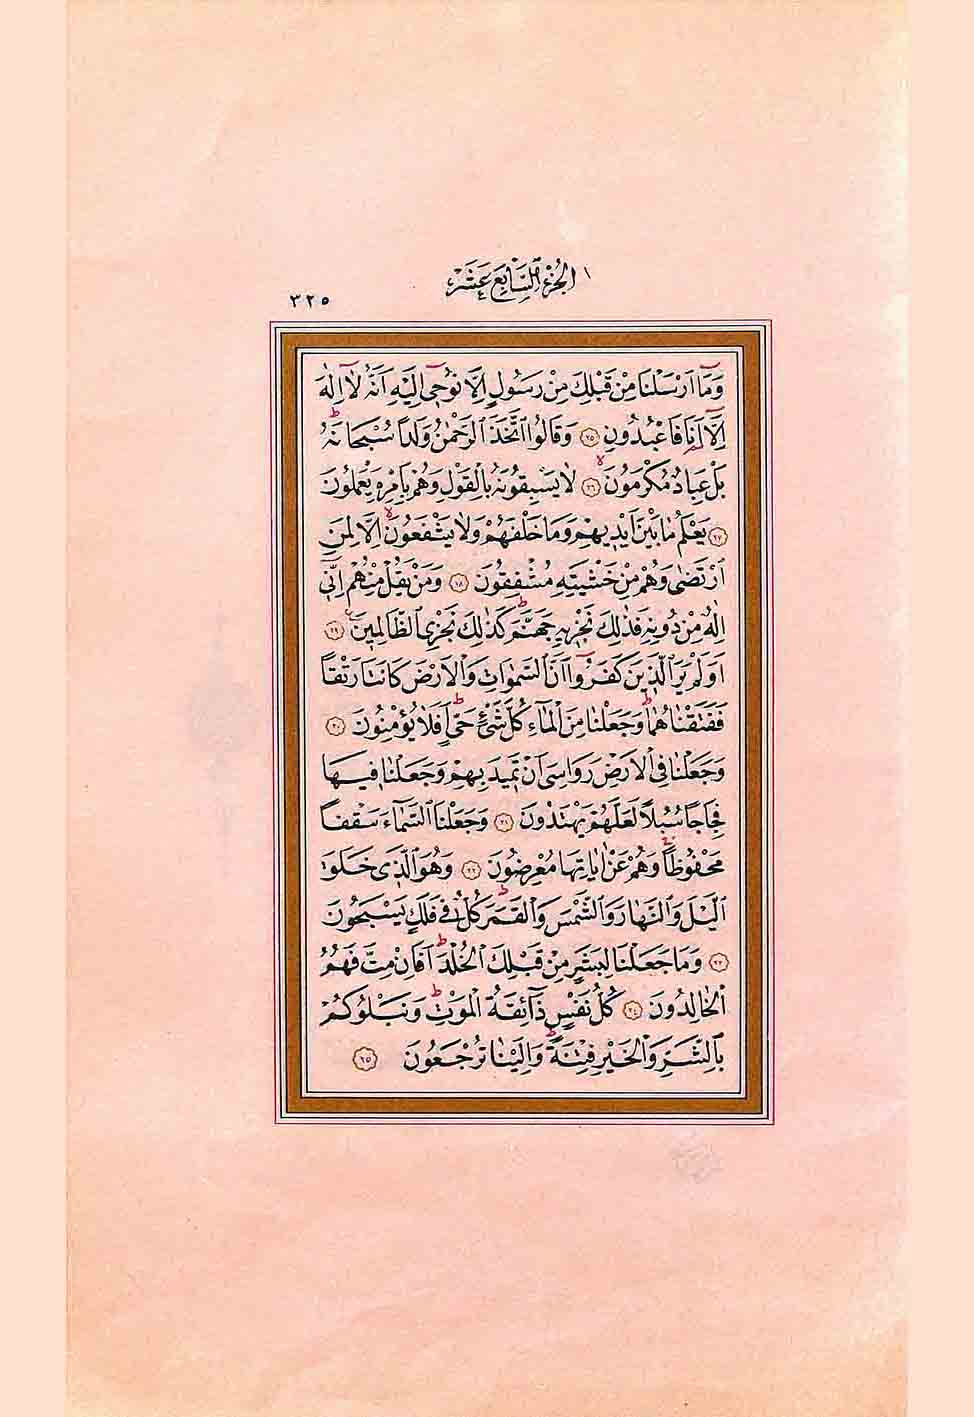 الجزء السابع عشر
٣٢٥
وَمَٓا اَرْسَلْنَا مِنْ قَبْلِكَ مِنْ رَسُولٍ اِلَّا نُوح۪ٓي اِلَيْهِ اَنَّهُ لَٓا اِلٰهَ
اِلَّٓا اَنَا۬ فَاعْبُدُونِ ﴿٢٥﴾ وَقَالُوا اتَّخَذَ الرَّحْمٰنُ وَلَداً سُبْحَانَهُۜ
بَلْ عِبَادٌ مُكْرَمُونَۙ ﴿٢٦﴾ لَا يَسْبِقُونَهُ بِالْقَوْلِ وَهُمْ بِاَمْرِه۪ يَعْمَلُونَ
﴿٢٧﴾ يَعْلَمُ مَا بَيْنَ اَيْد۪يهِمْ وَمَا خَلْفَهُمْ وَلَا يَشْفَعُونَۙ اِلَّا لِمَنِ
ارْتَضٰى وَهُمْ مِنْ خَشْيَتِه۪ مُشْفِقُونَ ﴿٢٨﴾ وَمَنْ يَقُلْ مِنْهُمْ اِنّ۪ٓي
اِلٰهٌ مِنْ دُونِه۪ فَذٰلِكَ نَجْز۪يهِ جَهَنَّمَۜ كَذٰلِكَ نَجْزِي الظَّالِم۪ينَ۟ ﴿٢٩﴾
اَوَلَمْ يَرَ الَّذ۪ينَ كَفَرُٓوا اَنَّ السَّمٰوَاتِ وَالْاَرْضَ كَانَتَا رَتْقاً
فَفَتَقْنَاهُمَاۜ وَجَعَلْنَا مِنَ الْمَٓاءِ كُلَّ شَيْءٍ حَيٍّۜ اَفَلَا يُؤْمِنُونَ ﴿٣٠﴾
وَجَعَلْنَا فِي الْاَرْضِ رَوَاسِيَ اَنْ تَم۪يدَ بِهِمْ وَجَعَلْنَا ف۪يهَا
فِجَاجاً سُبُلاً لَعَلَّهُمْ يَهْتَدُونَ ﴿٣١﴾ وَجَعَلْنَا السَّمَٓاءَ سَقْفاً
مَحْفُوظاًۚ وَهُمْ عَنْ اٰيَاتِهَا مُعْرِضُونَ ﴿٣٢﴾ وَهُوَ الَّذ۪ي خَلَقَ
الَّيْلَ وَالنَّهَارَ وَالشَّمْسَ وَالْقَمَرَۜ كُلٌّ ف۪ي فَلَكٍ يَسْبَحُونَ
﴿٣٣﴾ وَمَا جَعَلْنَا لِبَشَرٍ مِنْ قَبْلِكَ الْخُلْدَۜ اَفَا۬ئِنْ مِتَّ فَهُمُ
الْخَالِدُونَ ﴿٣٤﴾ كُلُّ نَفْسٍ ذَٓائِقَةُ الْمَوْتِۜ وَنَبْلُوكُمْ
بِالشَّرِّ وَالْخَيْرِ فِتْنَةًۜ وَاِلَيْنَا تُرْجَعُونَ ﴿٣٥﴾